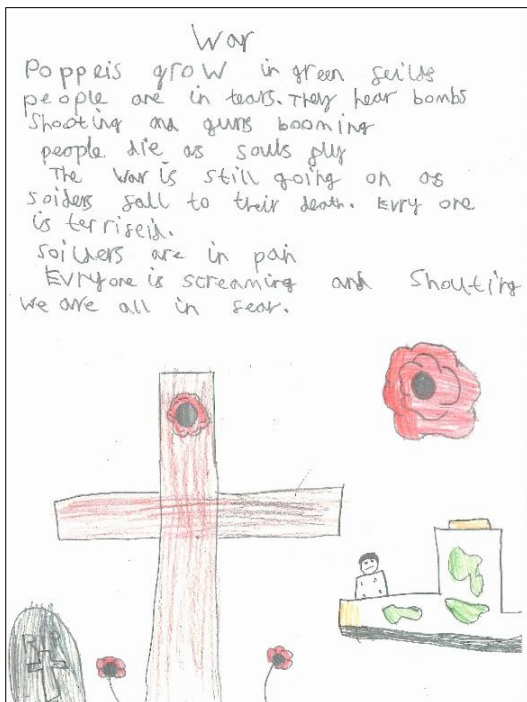 War
Poppeis grow in green feilds
people are in tears. They hear bombs
Shooting and guns booming
people die as souls fly
The war is still going on as
soiders fall to their death. Evry one
is terrifeid.
Soilders are in pain
Evryone is screaming and Shouting
we are all in fear.
RIP